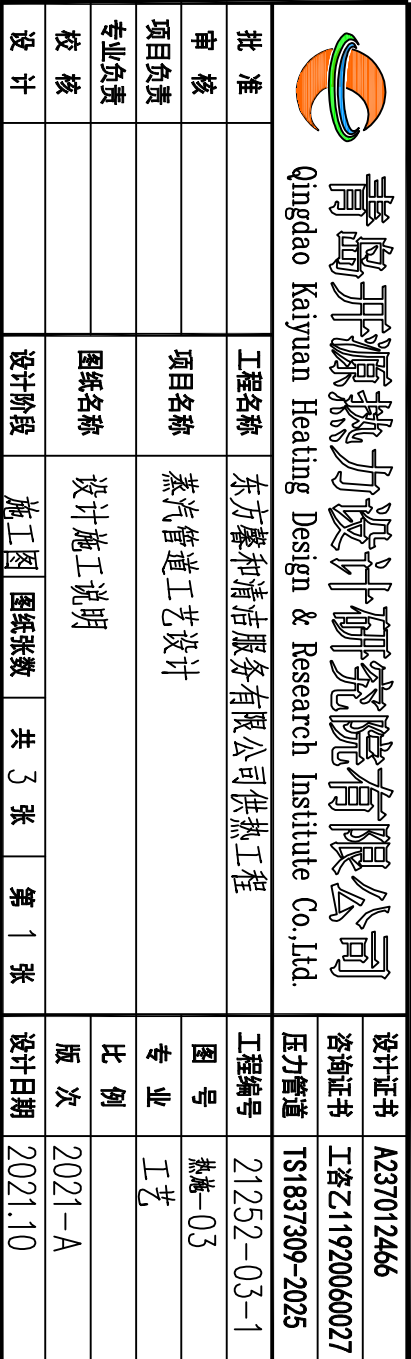 青岛开源热力设计研究院有限公司
Qingdao Kaiyuan Heating Design & Research Institute Co.,Ltd.
设计证书 A237012466
咨询证书 工咨乙11920060027
压力管道 TS1837309-2025
批 准 工程名称 东方馨和清洁服务有限公司供热工程 工程编号 21252-03-1
审 核 图 号 热施-03
项目负责 项目名称 蒸汽管道工艺设计 专 业 工艺
专业负责 比 例
校 核 图纸名称 设计施工说明 版 次 2021-A
设 计 设计阶段 施工图 图纸张数 共 3 张 第 1 张 设计日期 2021.10